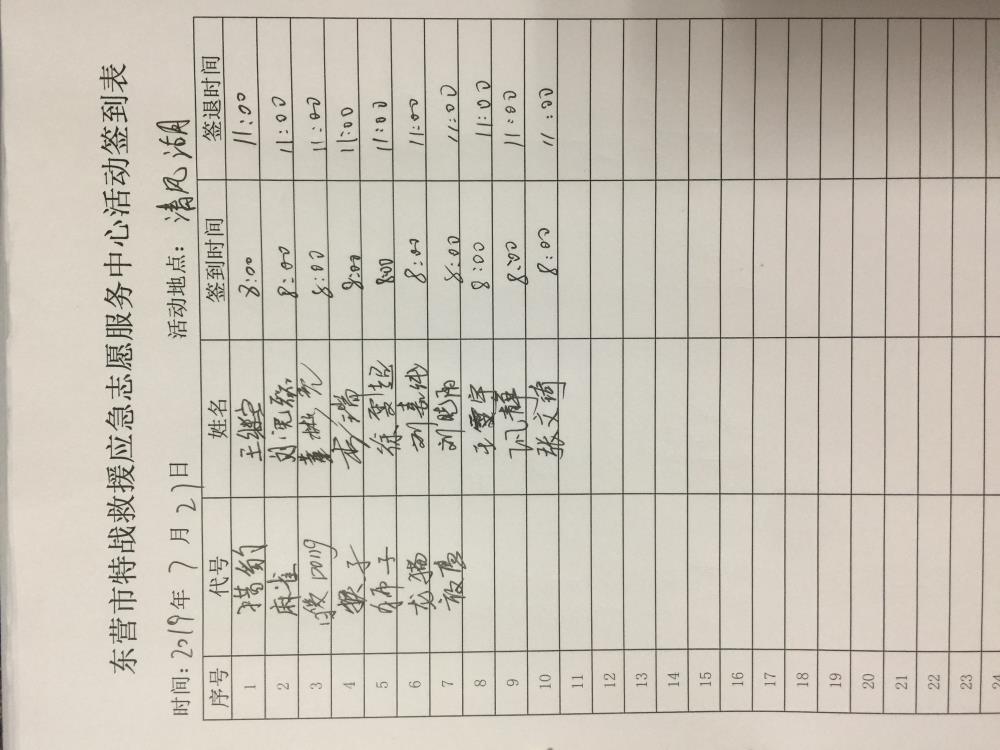 东营市特战救援应急志愿服务中心活动签到表
时间：2019年7月21日 活动地点：清风湖
序号 代号 姓名 签到时间 签退时间
1 猎豹 8:00 11:00
2 麻雀 8:00 11:00
3 8:00 11:00
4 猴子 8:00 11:00
5 狮子 徐雯超 8:00 11:00
6 龙猫 刘嘉纯 8:00 11:00
7 刘晓雨 8:00 11:00
8 王雪宇 8:00 11:00
9 8:00 11:00
10 张文绮 8:00 11:00
11
12
13
14
15
16
17
18
19
20
21
22
23
24